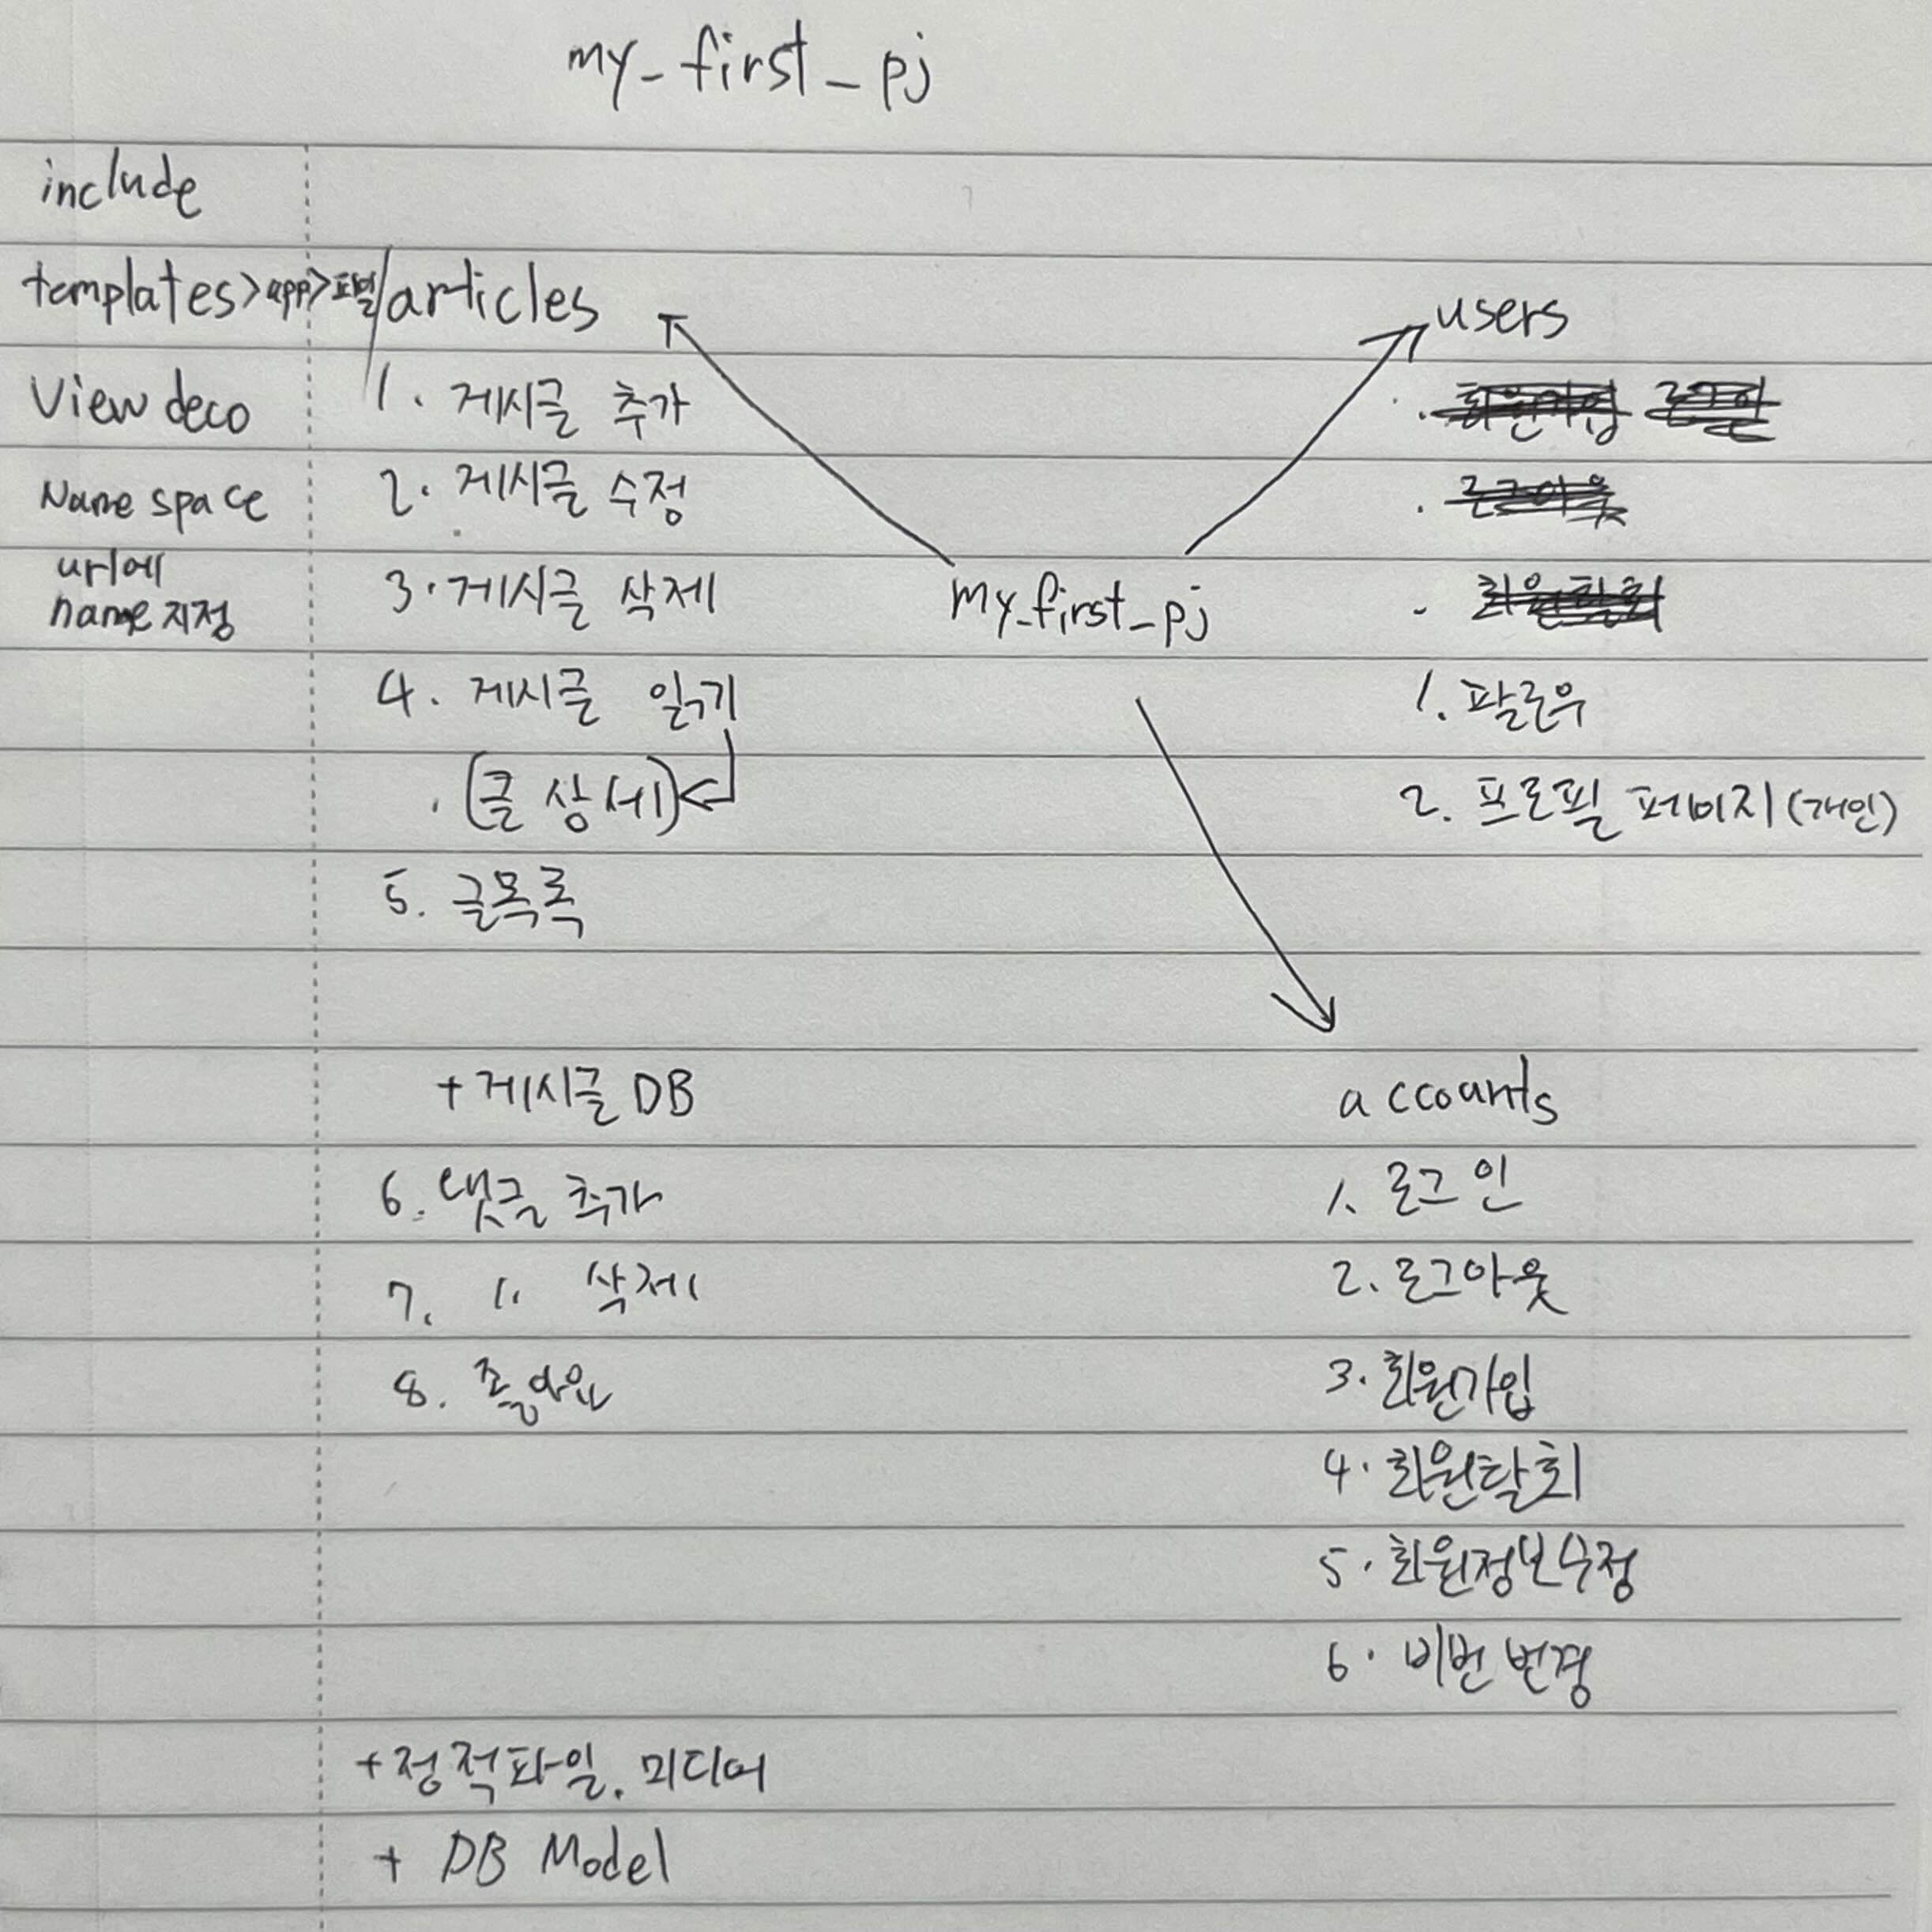 my_first_pj
include
templates>app>파일
View deco
Name space
url에
name지정
articles
1. 게시글 추가
2. 게시글 수정
3. 게시글 삭제
4. 게시글 읽기
(글 상세)
5. 글목록
+ 게시글 DB
6. 댓글 추가
7. 〃 삭제
8. 좋아요
+ 정적파일, 미디어
+ DB Model
my_first_pj
users
회원가입 로그인
로그아웃
회원탈퇴
1. 팔로우
2. 프로필 페이지(개인)
accounts
1. 로그인
2. 로그아웃
3. 회원가입
4. 회원탈퇴
5. 회원정보수정
6. 비번 변경